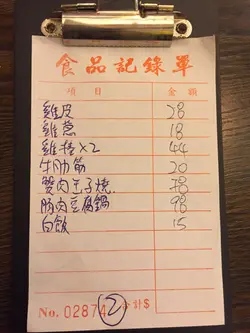 食品記錄單
項目 金額
雞皮 28
雞蔥 18
雞棒×2 44
牛肋筋 20
蟹肉玉子燒 78
豚肉豆腐鍋 98
白飯 15
No. 02874 ② 合計$